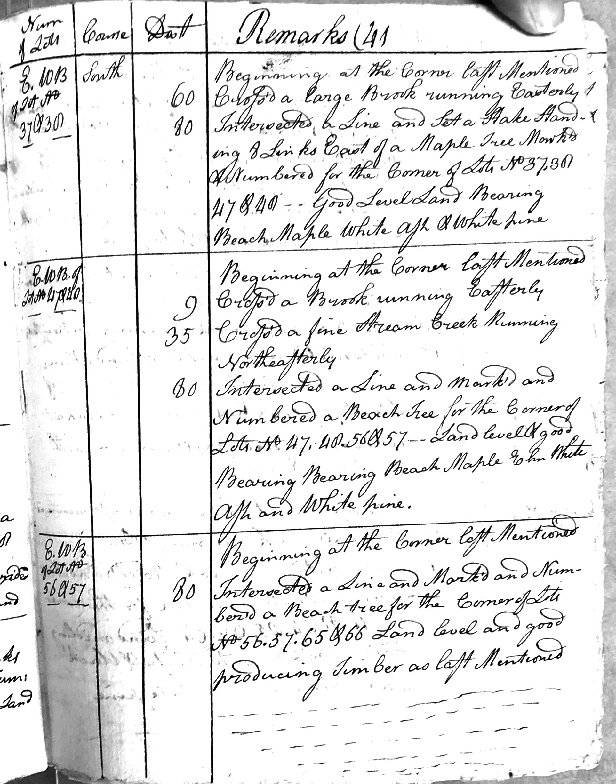 Num
of Lots
Course
Dist
Remarks (41
E. W B
of Lot No
37 & 38
South
Beginning at the Corner last Mentioned
60 Cross'd a large Brook running Easterly
80 Intersected a Line and Set a Stake Stand-
ing 8 Links East of a Maple Tree Mark'd
& Numbered for the Corner of Lots No 37. 38
47 & 48 -- Good Level Land Bearing
Beach, Maple White Ash & White pine
E. W B. of
Lot No 47 & 48
Beginning at the Corner last Mentioned
9 Cross'd a Brook running Easterly
35 Cross'd a fine Stream Creek Running
Northeasterly
80 Intersected a Line and mark'd and
Numbered a Beach tree for the Corner of
Lots No 47. 48. 56 & 57 -- Land level & good
Bearing Bearing Beach Maple Elm White
Ash and White pine.
E. W B
of Lot No
56 & 57
Beginning at the Corner last Mentioned
80 Intersected a Line and Mark'd and Num-
ber'd a Beach tree for the Corner of Lots
No 56. 57. 65 & 66 Land level and good
producing Timber as last Mentioned